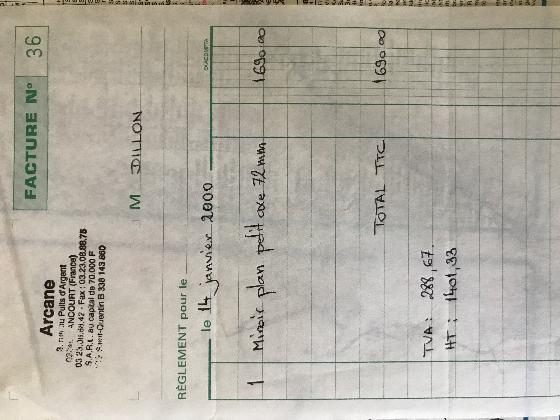 Arcane
3, rue du Puits d'Argent
ANCOURT (France)
03.23.08.88.42 - Fax : 03.23.08.88.75
S.A.R.L. au capital de 70.000 F
Saint-Quentin B 338 143 860
FACTURE N° 36
M DILLON
RÈGLEMENT pour le
le 14 janvier 2000
1 Miroir plan petit axe 72mm 1690.00
TOTAL TTC 1690.00
TVA : 288,67.
HT : 1401,33